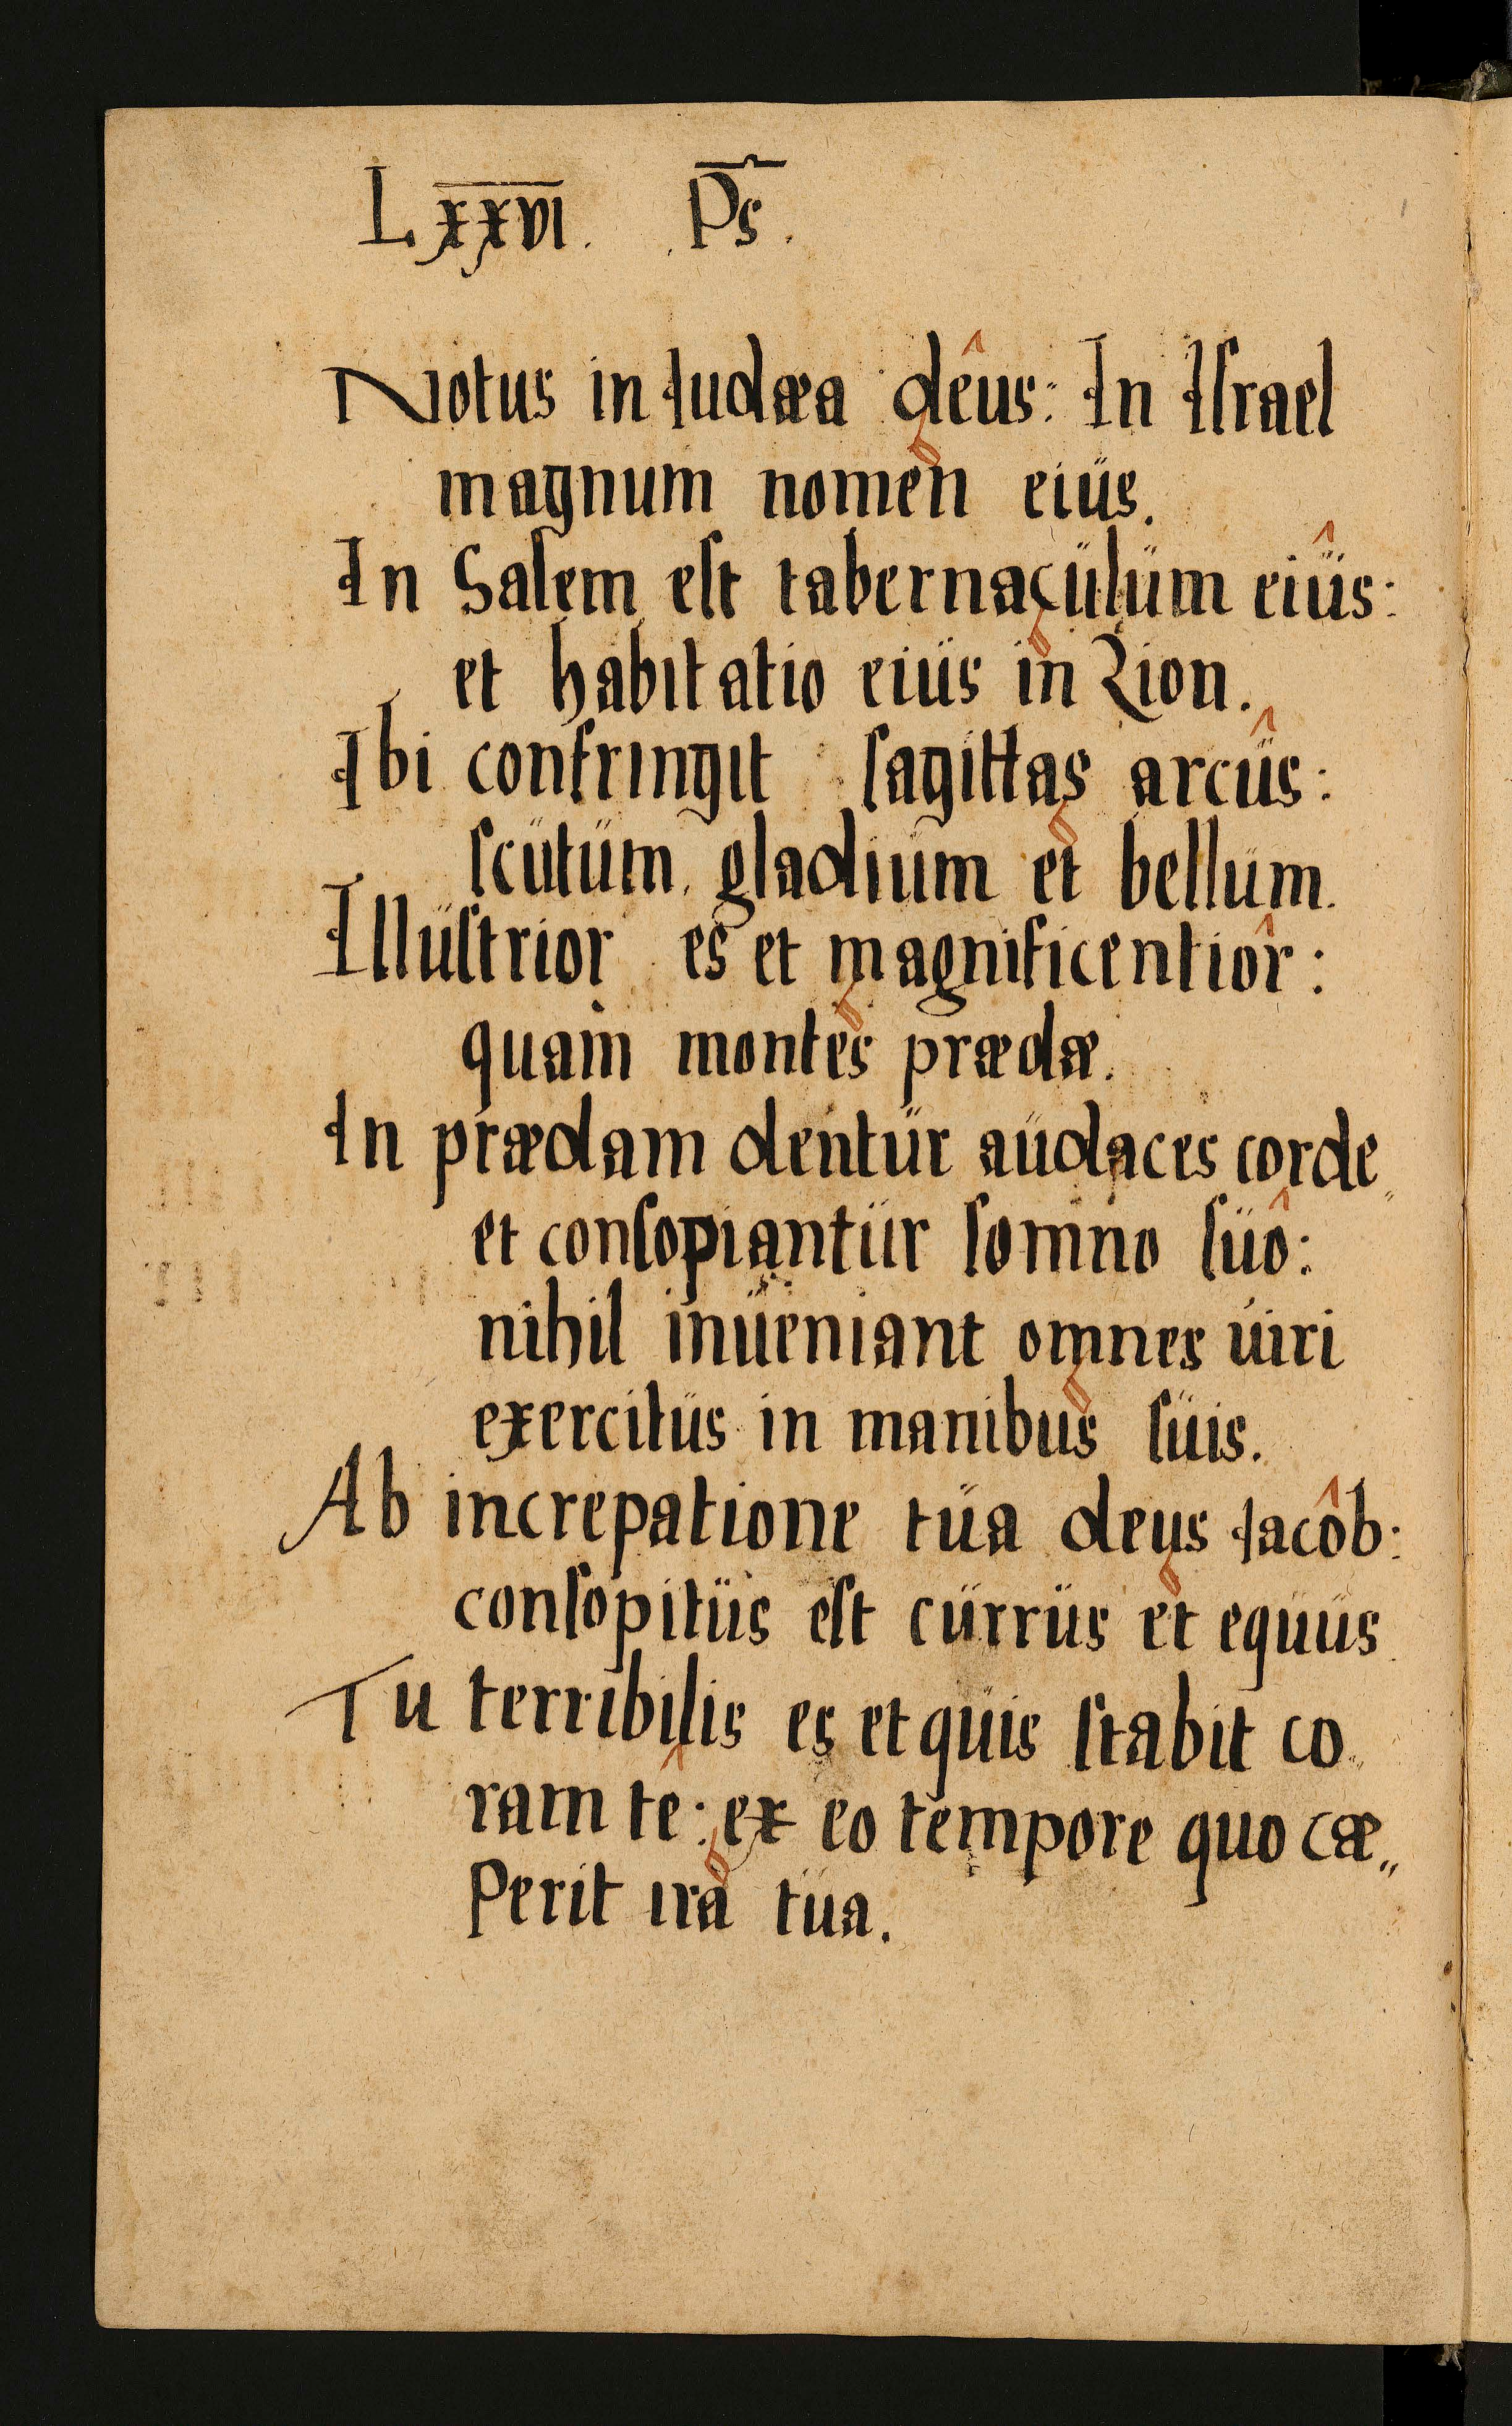 Lxxvi. Ps.
Notus in Iudæa deus: In Iſrael
magnum nomen eiüs.
In Salem eſt tabernacülüm eiüs:
et habitatio eiüs in Zion.
Ibi confringit ſagittas arcüs:
ſcütüm, gladiüm et bellüm.
Illüſtrior es et magnificentior:
quam montes prædæ.
In prædam dentür aüdaces corde„
et conſopiantür ſomno ſüo:
nihil inüeniant omnes üiri
exercitüs in manibus ſüis.
Ab increpatione tüa deus Iacob:
conſopitüs eſt cürrüs et equüs.
Tu terribilis es et qüis ſtabit co„
ram te: ex eo tempore quo cæ„
Perit ira tüa.